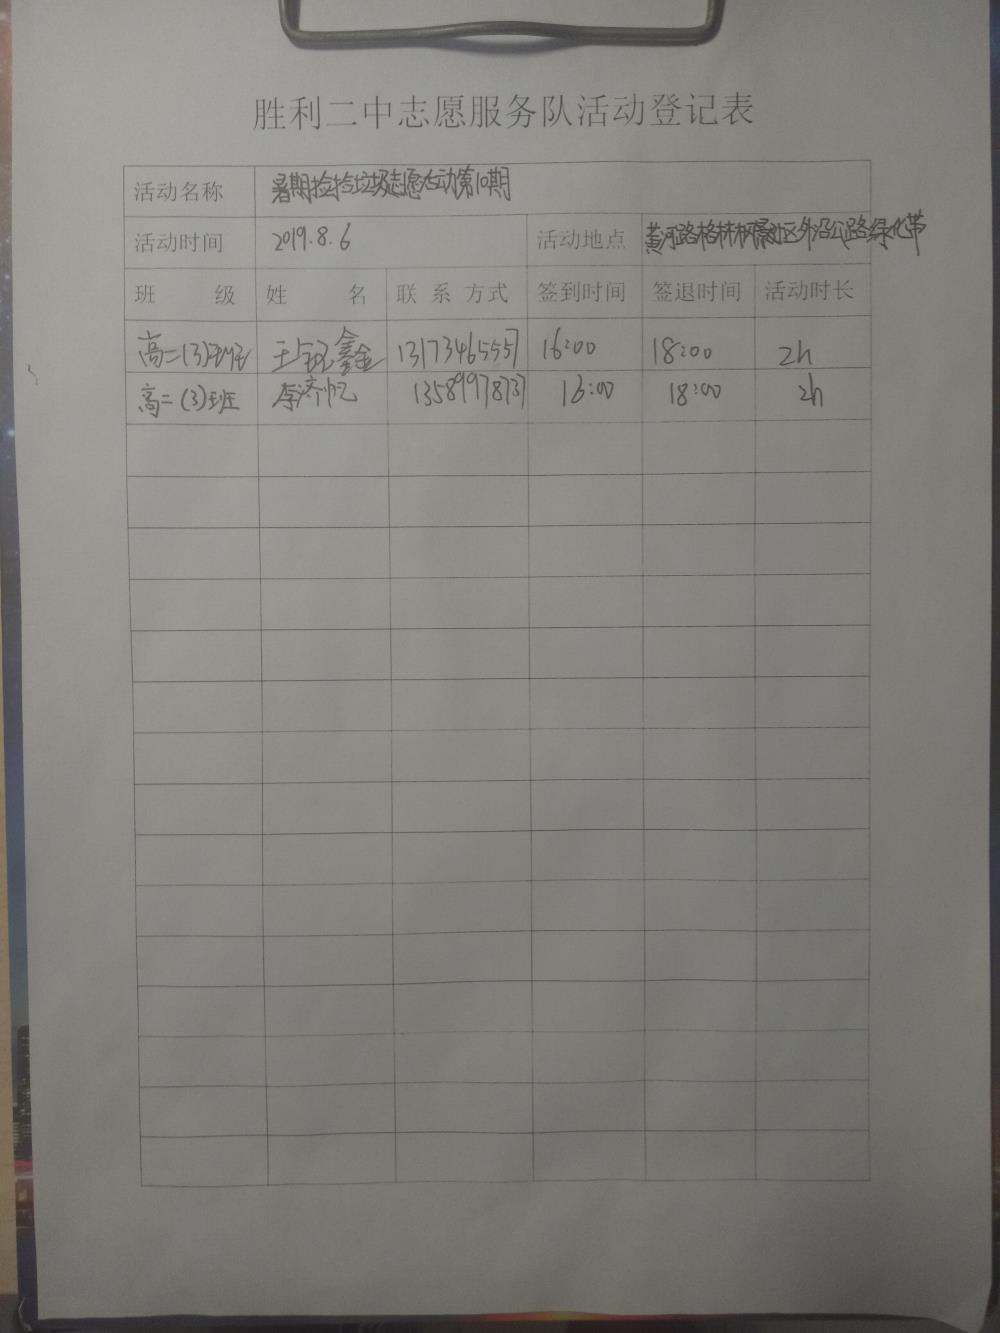 胜利二中志愿服务队活动登记表
活动名称 暑期捡拾垃圾志愿活动第10期
活动时间 2019.8.6 活动地点 黄河路格林枫景社区外沿公路绿化带
班 级 姓 名 联 系 方式 签到时间 签退时间 活动时长
高二(3)班 王 鑫 13173465557 16:00 18:00 2h
高二(3)班 李济忆 13589978737 16:00 18:00 2h